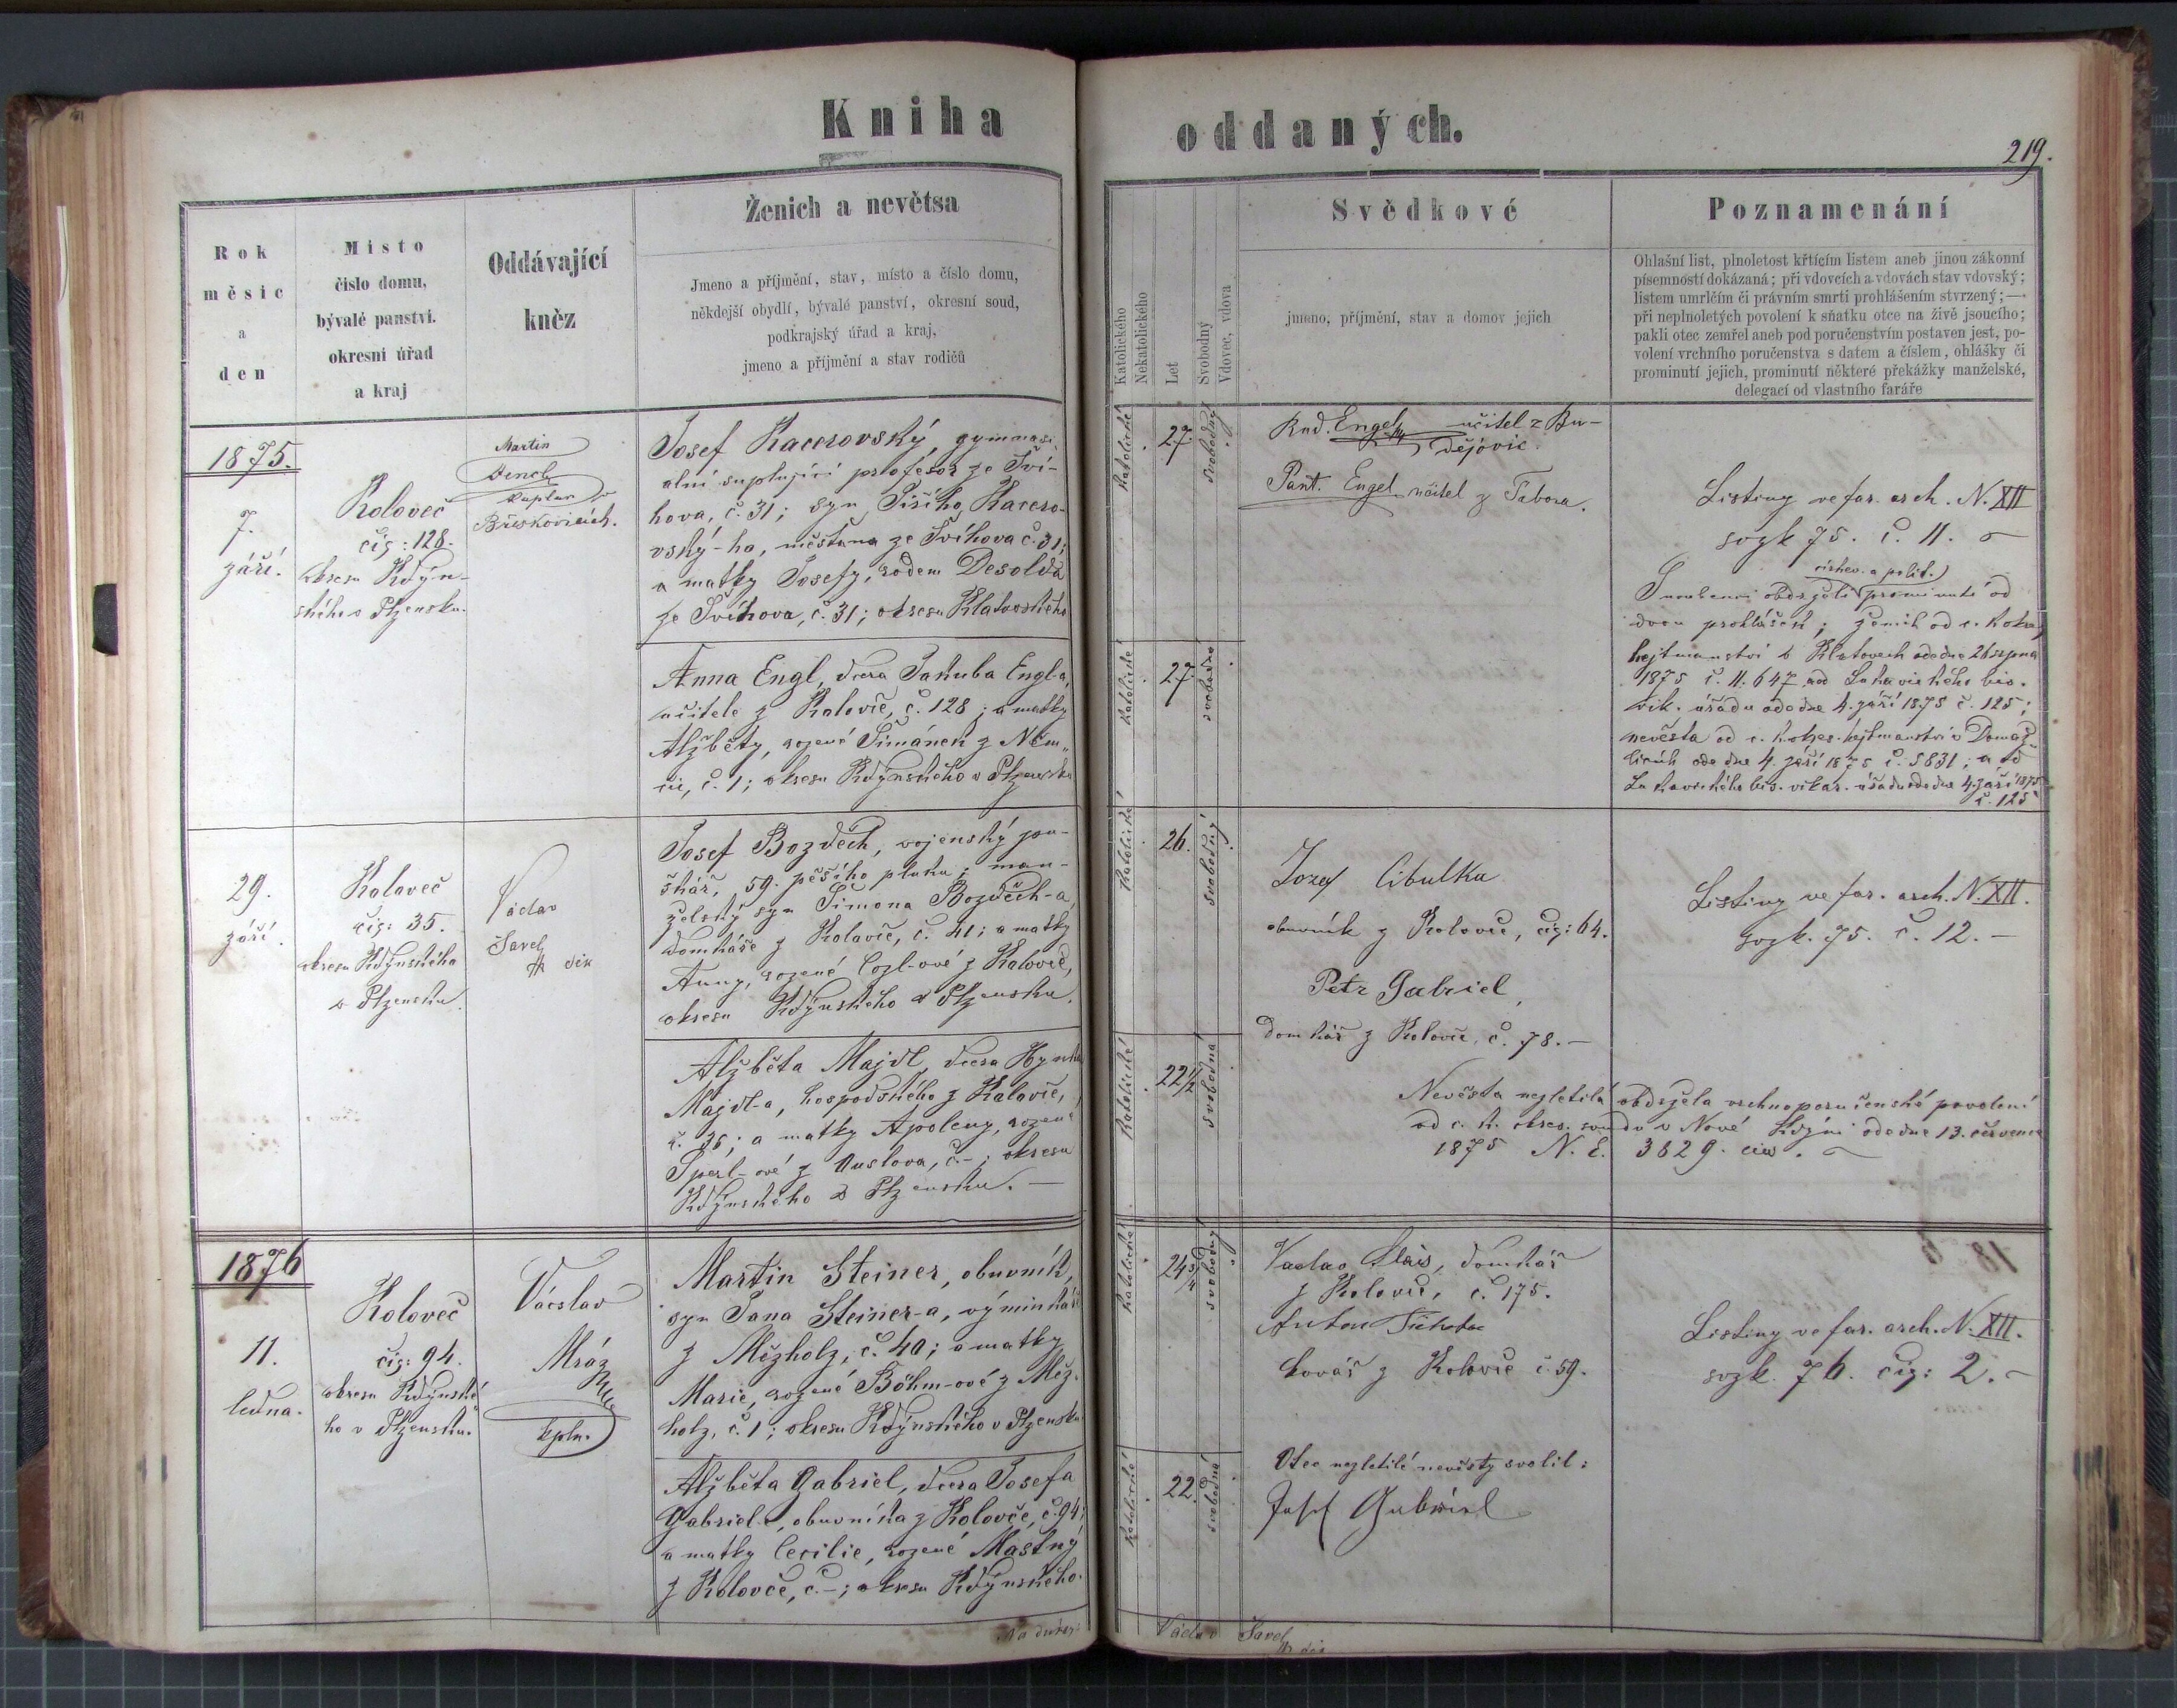 Kniha oddaných.
219.
Rok
měsíc
a
den
Místo
číslo domu,
bývalé panství.
okresní úřad
a kraj
Oddávající
kněz
Ženich a nevětsa
Jmeno a příjmění, stav, místo a číslo domu,
někdejší obydlí, bývalé panství, okresní soud,
podkrajský úřad a kraj,
jmeno a příjmění a stav rodičů
Katolického
Nekatolického
Let
Svobodný
Vdovec, vdova
Svědkové
jmeno, příjmění, stav a domov jejich
Poznamenání
Ohlašní list, plnoletost křtícím listem aneb jinou zákonní
písemností dokázaná; při vdovcích a vdovách stav vdovský;
listem umrlčím či právním smrti prohlášením stvrzený;—
při neplnoletých povolení k sňatku otce na živě jsoucího;
pakli otec zemřel aneb pod poručenstvím postaven jest, po-
volení vrchního poručenstva s datem a číslem, ohlášky či
prominutí jejich, prominutí některé překážky manželské,
delegací od vlastního faráře
1875.
7.
září.
Koloveč
čís: 128.
okresu Kdýn-
ského v Plzensku.
Martin
kaplan v
Josef Kacerovský, gymnasi-
alní suplující profesor ze Švi-
hova, č. 31; syn Jiřího Kacero-
vský-ho, měšťana ze Švihova č. 31;
a matky Josefy, rodem Desolda
ze Švihova, č. 31; okresu Klatovského
Katolické
27.
svobodný
Rud. Engel učitel z Bu-
dějovic.
Pant. Engel učitel z Tabora.
Listiny ve far. arch. N. XII
svzk 75. č. 11.
církev. a polit.
Snoubenci obdrželi prominutí od
dvou prohlášek; ženich od c. k okres.
hejtmanství v Klatovech ode dne 26 srpna
1875 č. 11.647 a od bis.
vik. úřadu ode dne 4. září 1875 č. 125;
nevěsta od c. k. okres. hejtmanství v Domaž-
licích ode dne 4. září 1875 č. 5831; a od
bis. vikar. úřadu ode dne 4. září 1875
č. 125
Anna Engl, dcera Jakuba Engl-a,
učitele z Kolovče, č. 128; a matky
Alžběty, rozené Šimánek z Něm-
čic, č. 1; okresu Kdýnského v Plzensku
Katolické
27.
svobodná
29.
září.
Koloveč
čís: 35.
okresu Kdýnského
v Plzensku.
Václav
Šavel
děk
Josef Bozděch, vojenský pou-
šťkář, 59. pěšího pluku; man-
želský syn Šimona Bozděch-a,
domkáře z Kolovče, č. 41; a matky
Anny, rozené Cozl-ové z Kolovče,
okresu Kdýnského v Plzensku.
Katolické
26.
svobodný
Jozef Cibulka
obuvník z Kolovče, čís: 64.
Petr Gabriel,
domkář z Kolovče, č. 78.—
Listiny ve far. arch. N. XII.
svzk. 75. č. 12.—
Alžběta Majdl, dcera Hynka
Majdl-a, hospodského z Kolovče,
č. 35; a matky Apoleny, rozené
Šperl-ové z Ouslova, č.—; okresu
Kdýnského v Plzensku.—
Katolické
22½
svobodná
Nevěsta nezletilá obdržela vrchnoporučenské povolení
od c. k. okres. soudu v Nové Kdyni ode dne 13. července
1875 N. E. 3829. civ.
1876
11.
ledna.
Koloveč
čís: 94.
okresu Kdýnské-
ho v Plzensku.
Václav
Mráz
kpln.
Martin Steiner, obuvník,
syn Jana Steiner-a, výminkáře
z Mězholz, č. 40; a matky
Marie, rozené Böhm-ové z Měz-
holz, č. 1; okresu Kdýnského v Plzensku
Katolické
24¾
svobodný
Vaclav Klais, domkář
z Kolovče, č. 175.
Anton Tichota
kovář z Kolovče č. 59.
Listiny ve far. arch. N. XII.
svzk. 76. čís: 2.—
Alžběta Gabriel, dcera Josefa
Gabriel-a, obuvníka z Kolovče, č. 94;
a matky Cecilie, rozené Mastný
z Kolovče, č.—; okresu Kdýnského.
Katolické
22.
svobodná
Otec nezletilé nevěsty svolil:
Josef Gabriel
Václav Šavel
děk